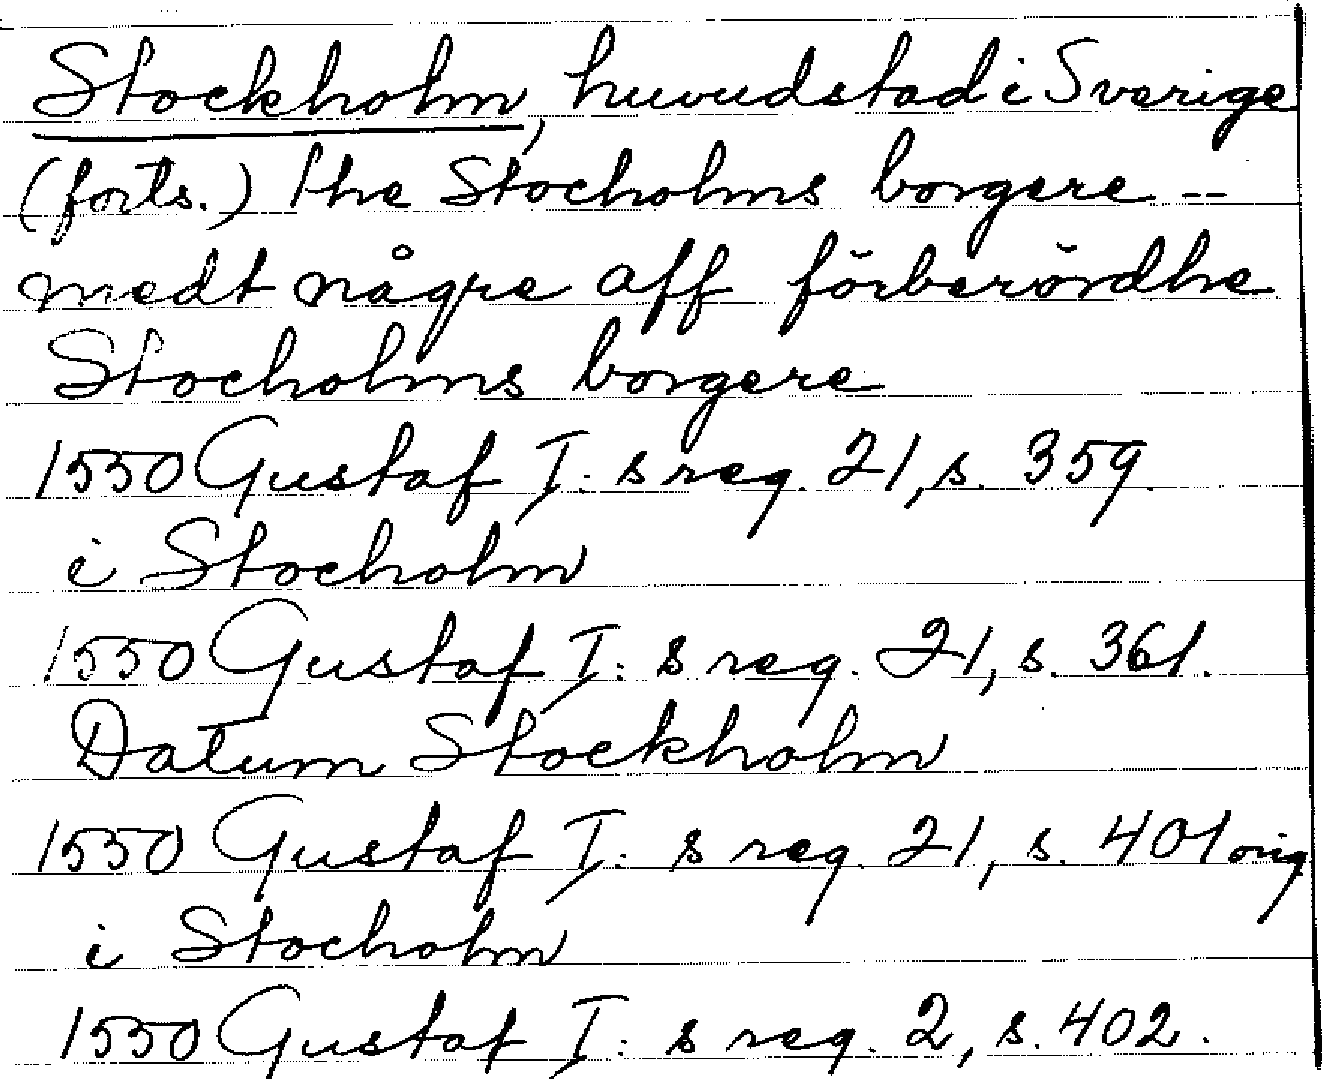 Stockholm, huvudstad i Sverige
(forts.) the Stocholms borgere --
medt någre aff förberördhe
Stocholms borgere
1550 Gustaf I: s reg. 21, s. 359.
i Stocholm
1550 Gustaf I: s reg. 21, s. 361.
Datum Stockholm
1550 Gustaf I: s reg. 21, s. 401 orig
i Stocholm
1550 Gustaf I: s reg. 2, s. 402.